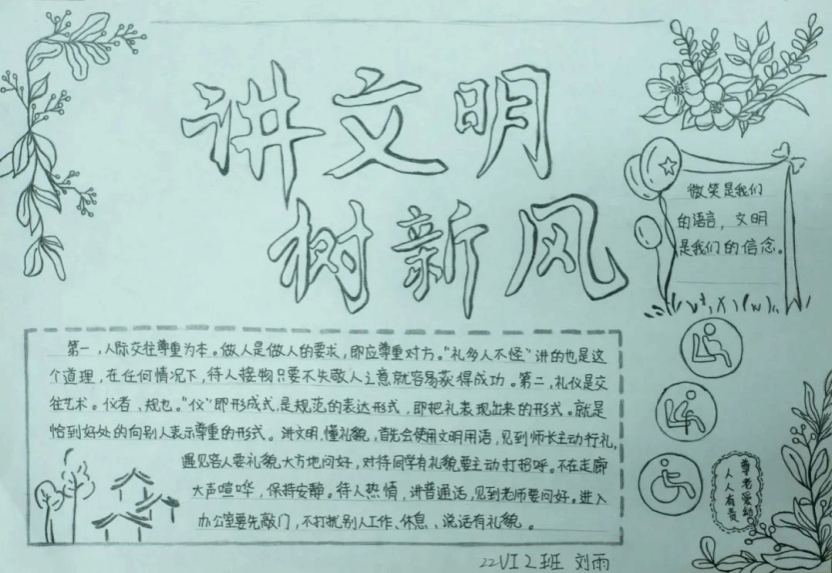 讲文明
树新风
微笑是我们
的语言，文明
是我们的信念。
第一，人际交往尊重为本。做人是做人的要求，即应尊重对方。"礼多人不怪"讲的也是这
个道理，在任何情况下，待人接物只要不失敬人之意就容易获得成功。第二，礼仪是交
往艺术。仪者、规也。"仪"即形成式，是规范的表达形式，即把礼表现出来的形式。就是
恰到好处的向别人表示尊重的形式。讲文明，懂礼貌，首先会使用文明用语，见到师长主动行礼，
遇见客人要礼貌大方地问好，对待同学有礼貌要主动打招呼。不在走廊
大声喧哗，保持安静。待人热情，讲普通话，见到老师要问好。进入
办公室要先敲门，不打扰别人工作、休息、说话有礼貌。
尊老爱幼
人人有责
22VI2班 刘雨